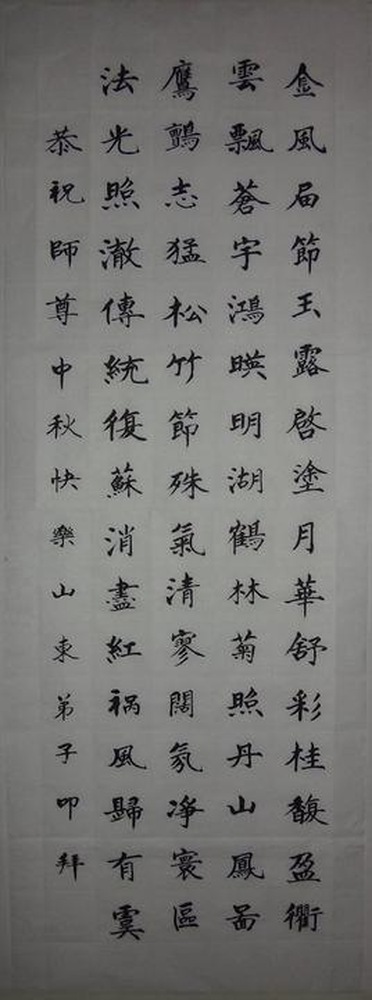 金風届節玉露啓塗月華舒彩桂馥盈衢
雲飄蒼宇鴻暎明湖鶴林菊照丹山鳳啚
鷹鸇志猛松竹節殊氣清寥闊氛凈寰區
法光照澈傳統復蘇消盡紅祸風歸有虞
恭祝師尊中秋快樂山東弟子叩拜